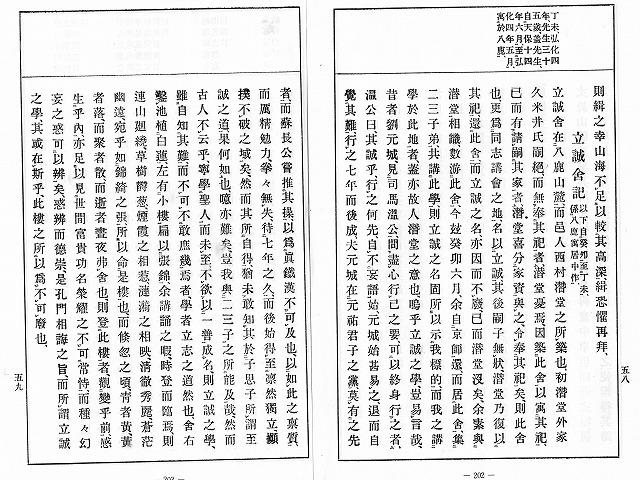 丁未弘化四
年先生三十
五歲蓋先生
自天保十四
年六月至弘
化四年五月
寓於八鹿
則緝之幸山海不足以較其高深緝恐懼再拜、
立誠舍記 以下自癸卯至丁未
係八鹿寓居中作
立誠舍在八鹿山麓而邑人西村潛堂之所築也初潛堂外家
久米井氏嗣絕而無奉其祀者潛堂憂焉因築此舍以寓其祀、
已而有請嗣其家者潛堂喜分家資與之令奉其祀矣則此舍
也更爲同志講會之地名以立誠其後嗣子無狀潛堂乃復以
其祀還此舍而立誠之名亦因而不廢已而潛堂沒矣余素與
潛堂相識數游此舍今茲癸卯六月余自京師還而居此舍集
二三子弟共講此學則立誠之名固所以示我標的而我之講
學於此地者蓋亦故人潛堂之意也嗚乎立誠之學豈易言哉、
昔者劉元城見司馬溫公問盡心行己之要可以終身行之者、
溫公曰其誠乎行之何先自不妄語始元城始甚易之退而自
覺其難行之七年而後成夫元城在元祐君子之黨莫有之先
五八
― 202 ―
者而蘇長公嘗推其操以爲眞鐵漢不可及也以如此之稟質、
而厲精勉力拳々無失待七年之久而後始得至凛然獨立顚
撲不破之域矣然而其所自得猶未敢知其於子思子所謂至
誠之道果何如也噫亦難矣豈我與二三子之所能及哉然而
古人不云乎寧學聖人而未至不欲以一善成名則立誠之學、
雖自知其難而不可不敢庶幾焉者學立志之道然也舍右
鑿池植白蓮左有小樓扁以張錦余講誦之暇時登而臨焉則
連山廻繞草樹欝葱煙霞之相惹漣漪之相映清徹秀麗蒼茫
幽邃宛乎如錦綺之張所以命是樓也而倏忽之頃青者黃黃
者落而聚者散而逝者晝夜弗舍也則登此樓者觀變乎前惑
生乎內亦足以見世間富貴功名榮燿之不可常恃而種々幻
妄之惑可以辨矣惑辨而德崇是孔門相誨之旨而所謂立誠
之學其或在斯乎此樓之所以爲不可廢也、
五九
― 203 ―